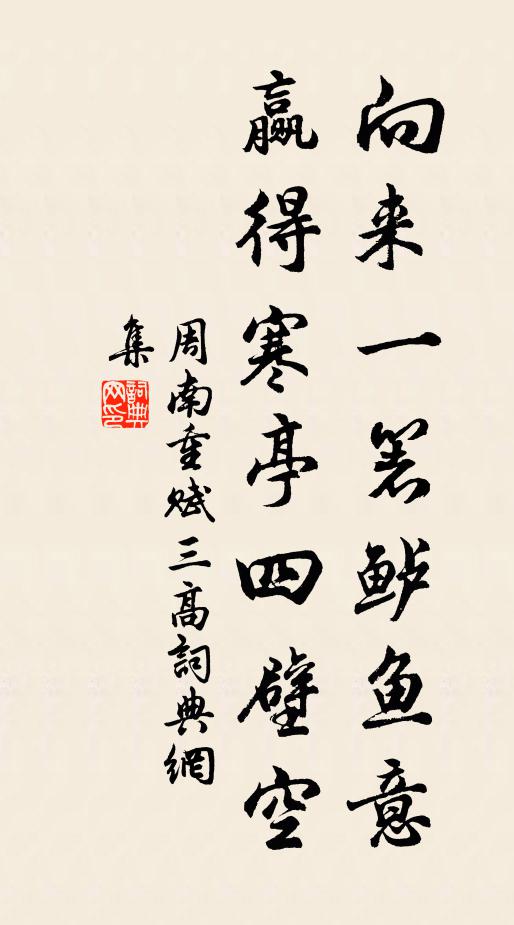 向来一箸鲈鱼意
赢得寒亭四壁空
周南重赋三高詞典網
集
詞典網印